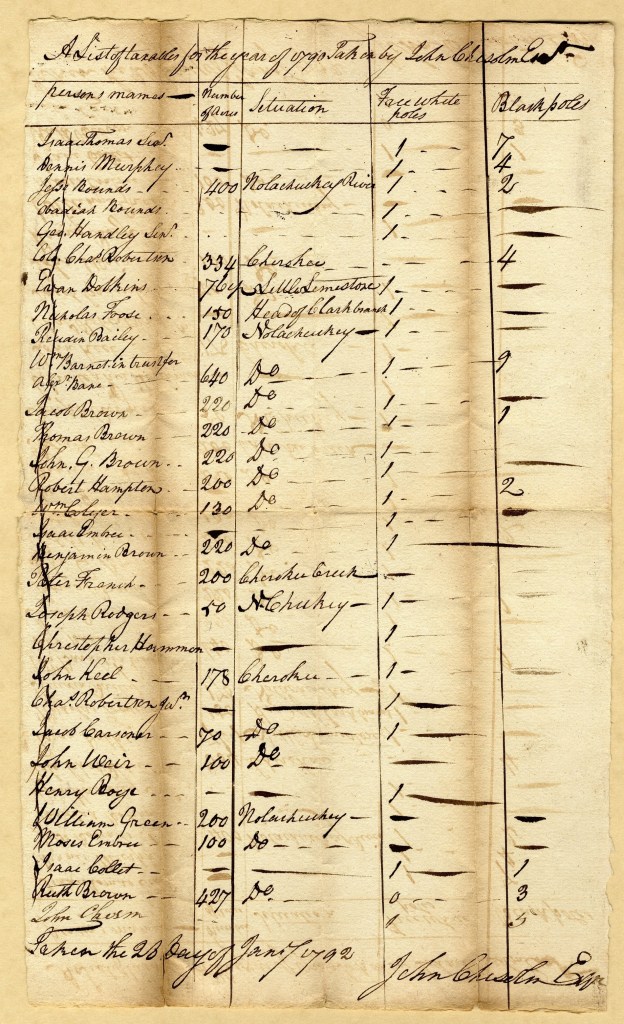 A List of taxables for the year of 1790 Taken by John Chisolm Esqr
persons names — Number of Acres Situation Free White poles Black poles
Isaac Thomas Senr. — — 1 7
Dennis Murphey — 1 4
Jesse Bounds 400 Nolachuckey River 1 2
Obadiah Bounds — 1 —
Geo. Handley Senr. 1 —
Colo. Chas Robertson 334 Cherokee 4
Evan Dolkins Little Limestone 1 —
Nicholas Foose 150 Head of Clark branch 1 —
Reuain Bailey 170 Nolachuckey 1 —
Wm Barnet in trust for
Alexr Bane 640 Do 1 9
Jacob Brown 220 Do 1 —
Thomas Brown 220 Do 1 1
John G. Brown 220 Do 1 —
Robert Hampton 200 Do 1 —
Wm Colyer 130 Do 1 2
Isaac Embree — 1 —
Benjamin Brown 220 Do 1 —
Peter French 200 Cherokee Creek — —
Joseph Rodgers 50 N Chuckey 1 —
Christopher Hammon — — 1 —
John Keel 178 Cherokee 1 —
Chas. Robertson Junr — — 1 —
Jacob Carsoner 70 Do 1 —
John Weir 100 Do — —
Henry Boye — — 1 —
William Green 200 Nolachuckey — —
Moses Embree 100 Do — —
Isaac Collet — — 1 1
Ruth Brown 427 Do 0 3
John Chesm 0 5
Taken the 26 Day of Jany 1792
John Chesolm Esqr